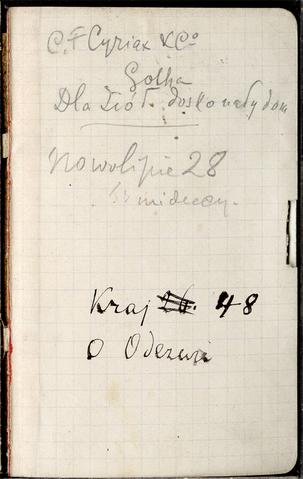 C. F Cyriax & Co
Gotha
Dla Ziół. doskonały dom
Nowolipie 28
Kraj 48
O Odezwie